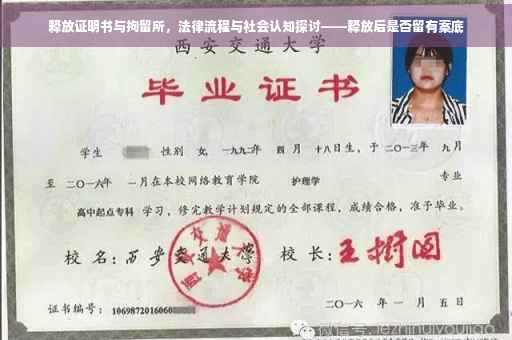 释放证明书与拘留所，法律流程与社会认知探讨——释放后是否留有案底
西安交通大学
毕业证书
学生 性别 女，一九九二年 四月 十八日生，于二〇一三年 九月
至 二〇一六年 一月在本校网络教育学院 护理学 专业
高中起点专科 学习，修完教学计划规定的全部课程，成绩合格，准予毕业。
校名：西安交通大学 校长：王树国
西安交通大学
证书编号：1069872016060
二〇一六年 一月 五日
微信号: jiezhihuiyoujiao